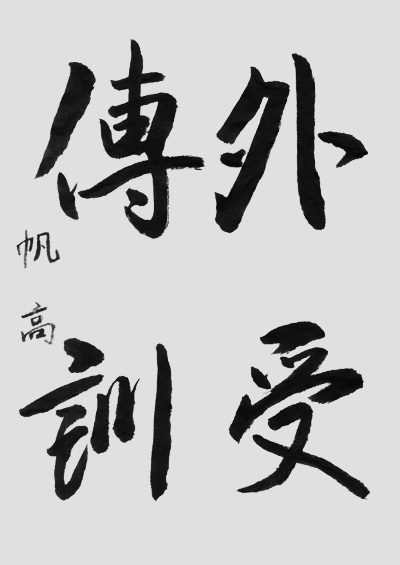 外受
傅訓
帆高